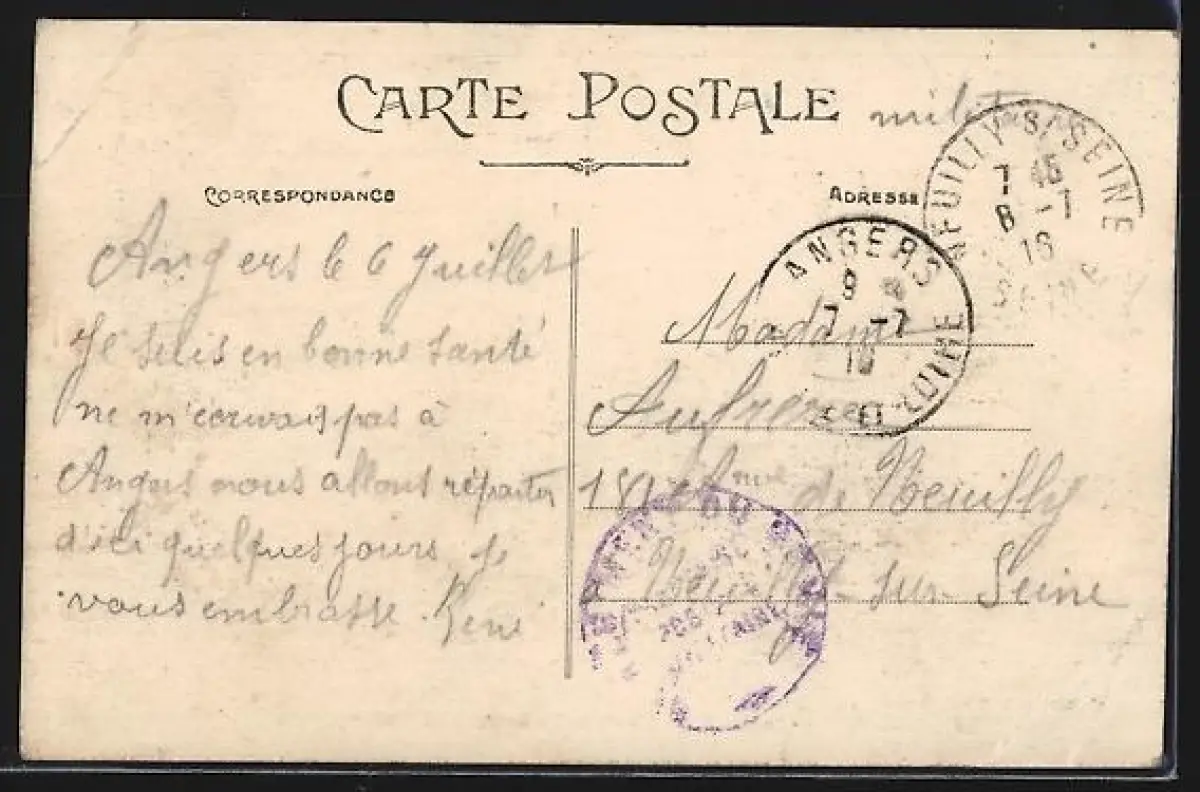 CARTE POSTALE
CORRESPONDANCE
ADRESSE
NEUILLY S/ SEINE
7 45
8 - 7
16
SEINE
ANGERS
9
7 - 7
16
ET LOIRE
Angers le 6 Juillet
Je suis en bonne santé
ne m'ecrivais pas à
Angers nous allons répartir
d'ici quelques jours. Je
vous embrasse. René
Madame
de Neuilly
Neuilly-sur-Seine